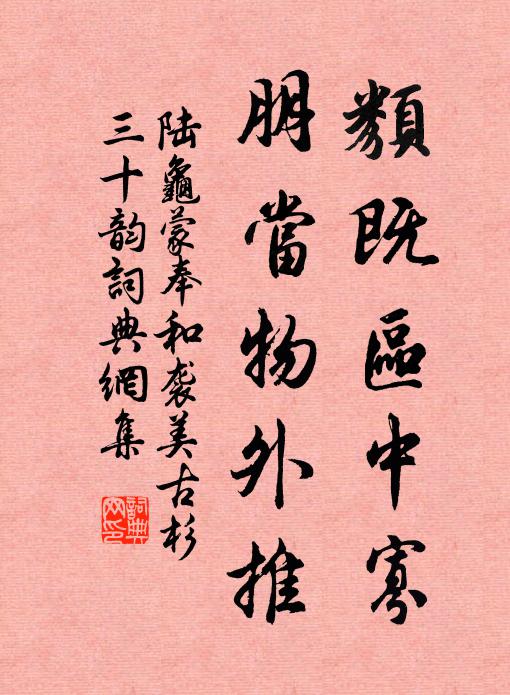 類既區中寡
朋當物外推
陆龜蒙奉和袭美古杉
三十韵詞典網集
詞典